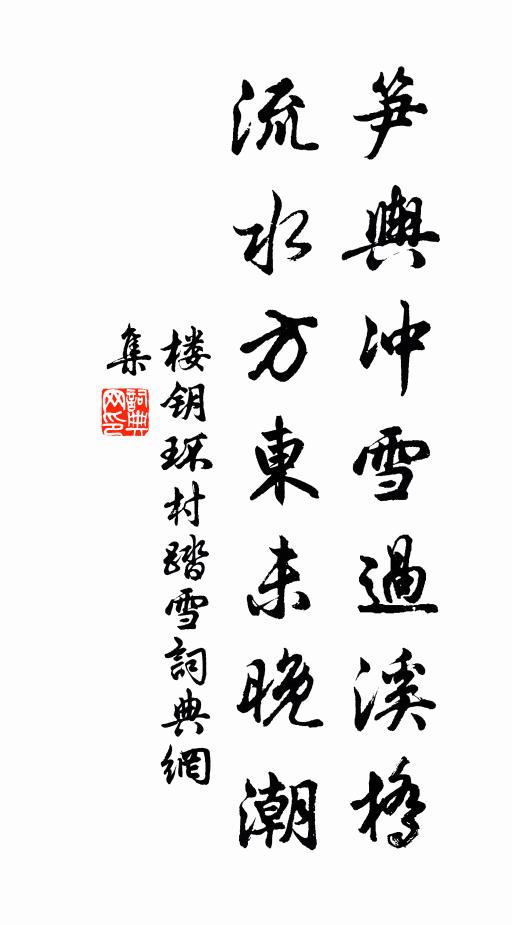 笋輿冲雪過溪橋
流水方東未晚潮
楼钥环村踏雪詞典網
集
詞典网印